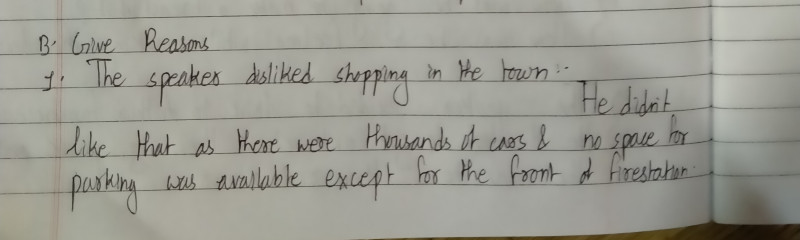 B. Give Reasons
1. The speaker disliked shopping in the town :-
He didn't
like that as there were thousands of cars & no space for
parking was available except for the front of firestation.